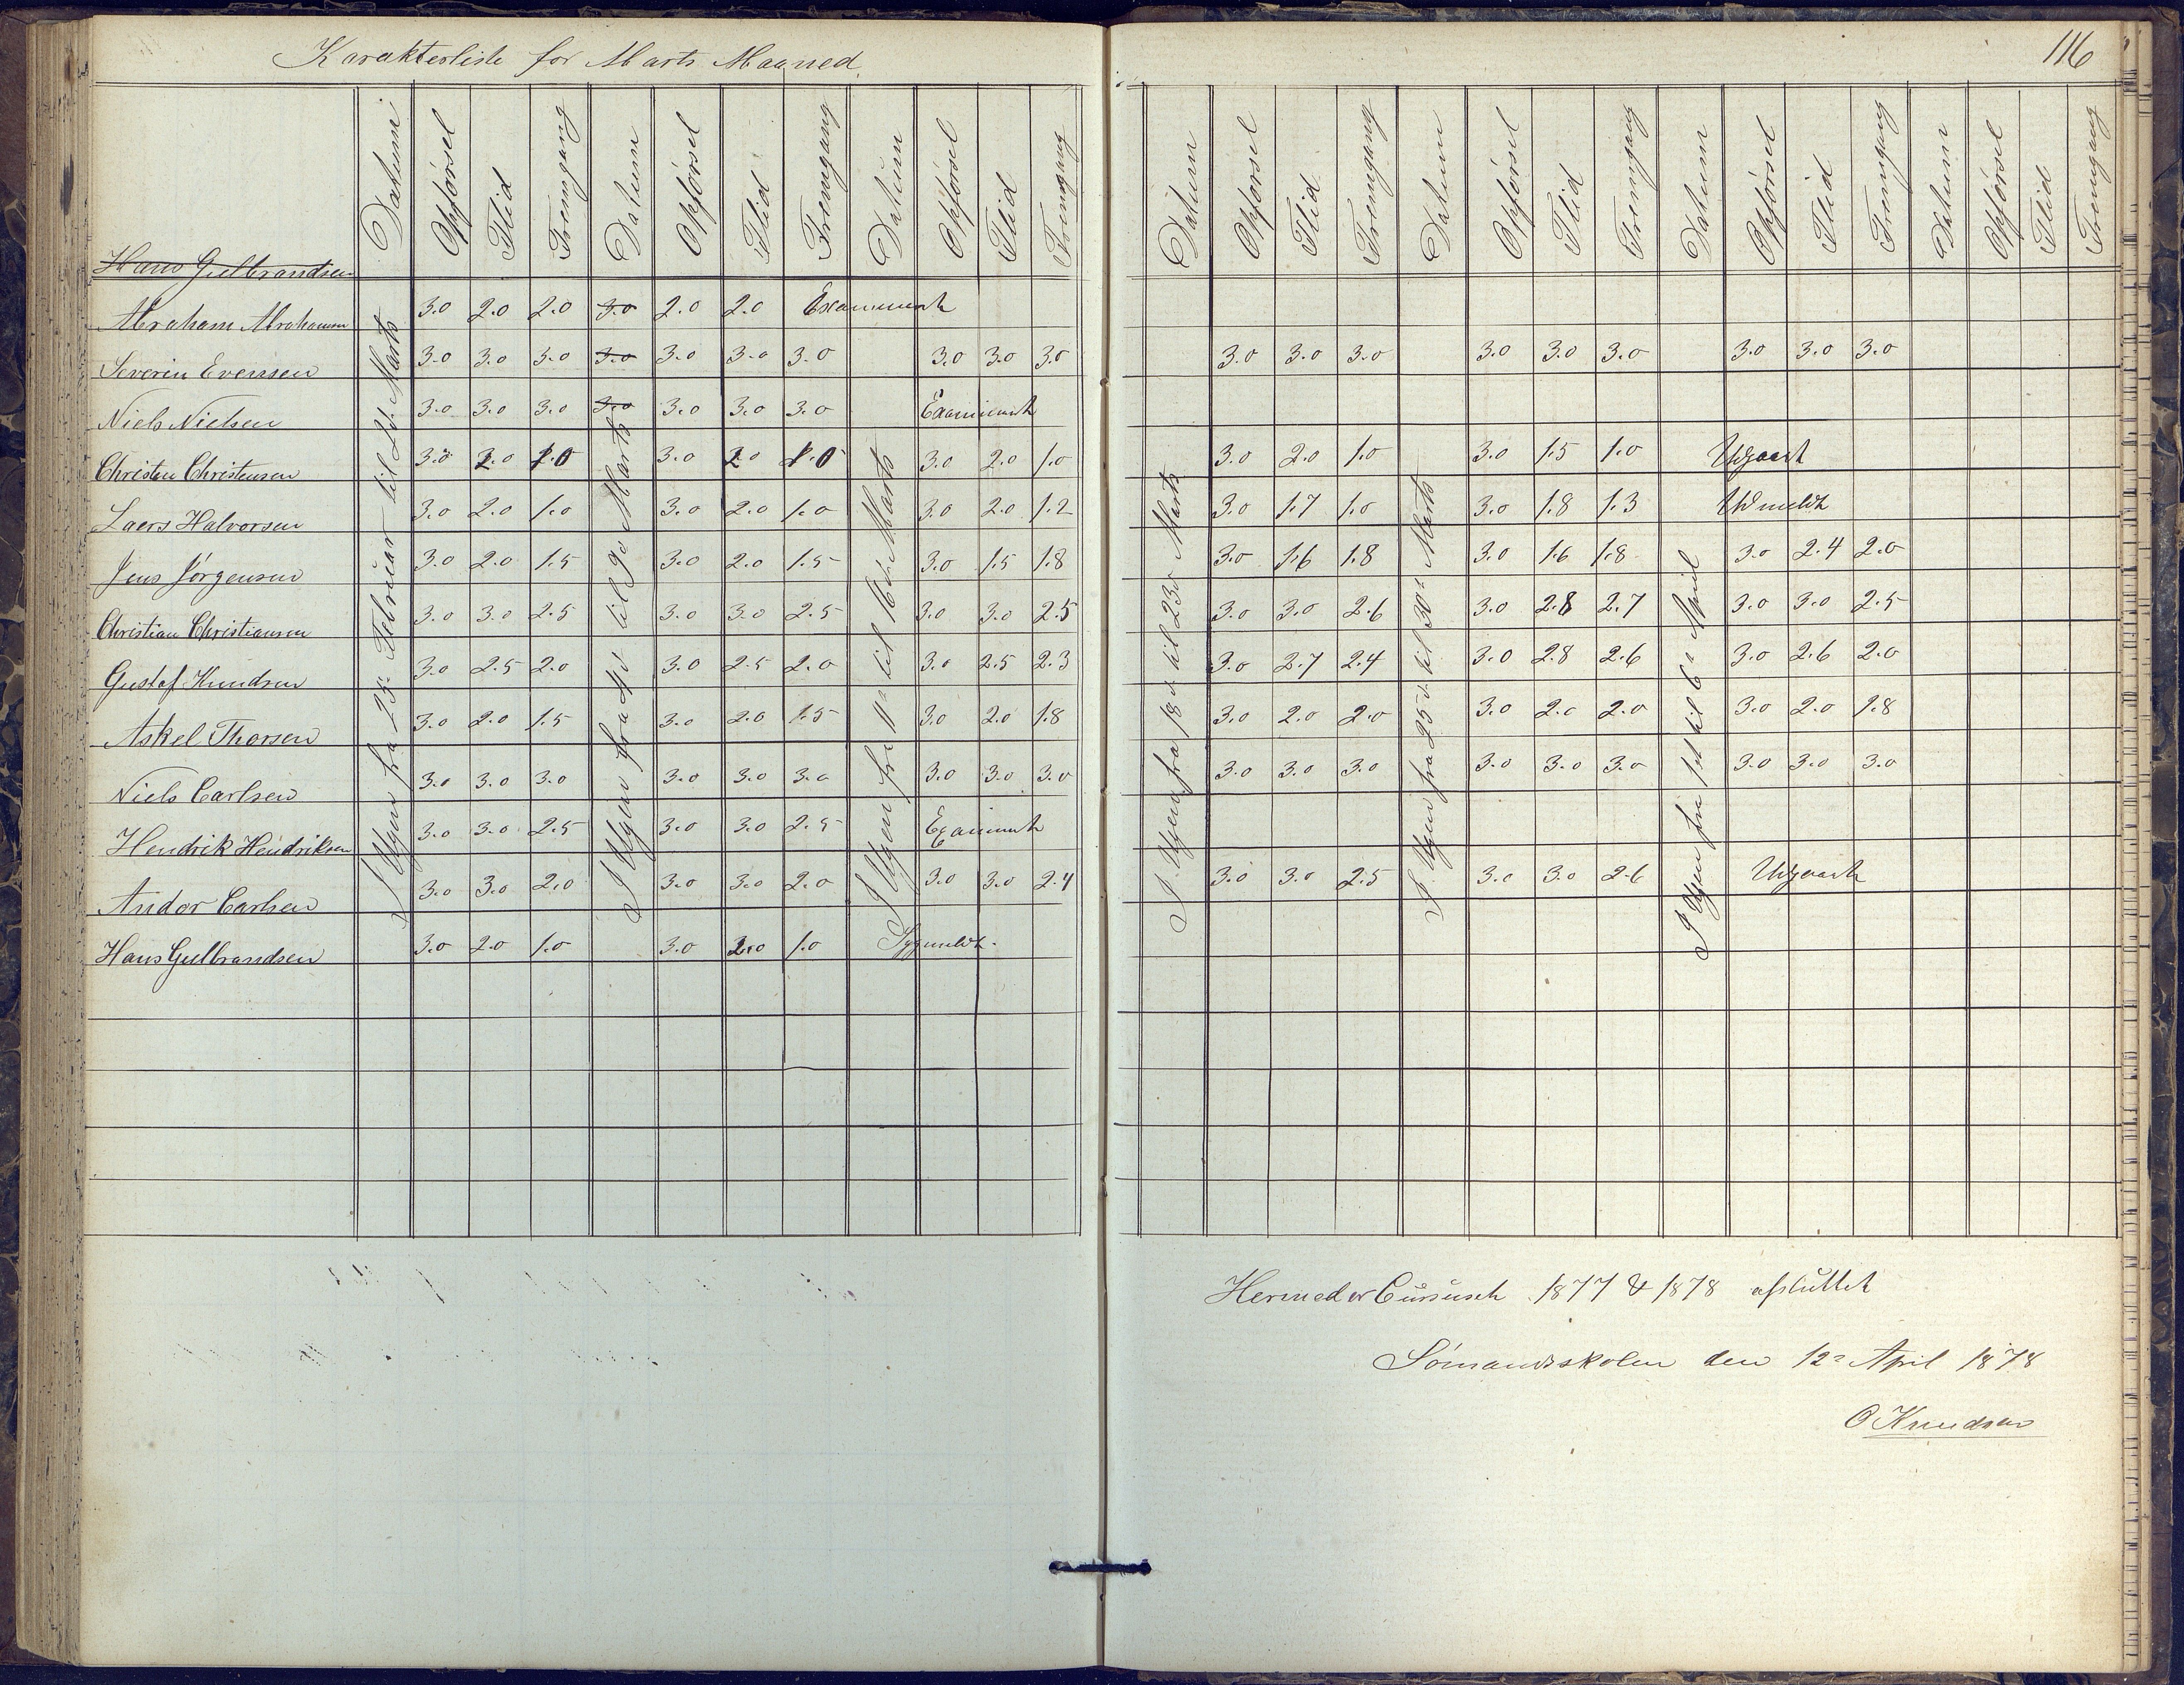 Karakterliste for Marts Maaned.
116
Datum Opførsel Flid Fremgang Datum Opførsel Flid Fremgang Datum Opførsel Flid Fremgang Datum Opførsel Flid Fremgang Datum Opførsel Flid Fremgang Datum Opførsel Flid Fremgang Datum Opførsel Flid Fremgang
I Ugen fra 25de Februar til 2d Marts
I Ugen fra 4d til 9d Marts
I Ugen fra 11te til 16de Marts
I Ugen fra 18d til 23d Marts
I Ugen fra 25d til 30te Marts
I Ugen fra 1st til 6d April
Hans Gulbrandsen
Abraham Abrahamsen 3.0 2.0 2.0 3.0 2.0 2.0 Examineret
Severin Evensen 3.0 3.0 3.0 3.0 3.0 3.0 3.0 3.0 3.0 3.0 3.0 3.0 3.0 3.0 3.0 3.0 3.0 3.0 3.0
Niels Nielsen 3.0 3.0 3.0 3.0 3.0 3.0 3.0 Examineret
Christen Christensen 3.0 2.0 1.0 3.0 2.0 1.0 3.0 2.0 1.0 3.0 2.0 1.0 3.0 1.5 1.0 Udgaaet
Laers Halvorsen 3.0 2.0 1.0 3.0 2.0 1.0 3.0 2.0 1.2 3.0 1.7 1.0 3.0 1.8 1.3 Udmeldt
Jens Jørgensen 3.0 2.0 1.5 3.0 2.0 1.5 3.0 1.5 1.8 3.0 1.6 1.8 3.0 1.6 1.8 3.0 2.4 2.0
Christian Christiansen 3.0 3.0 2.5 3.0 3.0 2.5 3.0 3.0 2.5 3.0 3.0 2.6 3.0 2.8 2.7 3.0 3.0 2.5
Gustaf Knudsen 3.0 2.5 2.0 3.0 2.5 2.0 3.0 2.5 2.3 3.0 2.7 2.4 3.0 2.8 2.6 3.0 2.6 2.0
Askel Thorsen 3.0 2.0 1.5 3.0 2.0 1.5 3.0 2.0 1.8 3.0 2.0 2.0 3.0 2.0 2.0 3.0 2.0 1.8
Niels Carlsen 3.0 3.0 3.0 3.0 3.0 3.0 3.0 3.0 3.0 3.0 3.0 3.0 3.0 3.0 3.0 3.0 3.0 3.0
Hendrik Hendriksen 3.0 3.0 2.5 3.0 3.0 2.5 Examineret
Andor Carlsen 3.0 3.0 2.0 3.0 3.0 2.0 3.0 3.0 2.4 3.0 3.0 2.5 3.0 3.0 2.6 Udgaaet
Hans Gulbrandsen 3.0 2.0 1.0 3.0 2.0 1.0 Sygmeldt.
Hermed er Cursuset 1877 & 1878 afsluttet
Sømandsskolen den 12te April 1878
O Knudsen